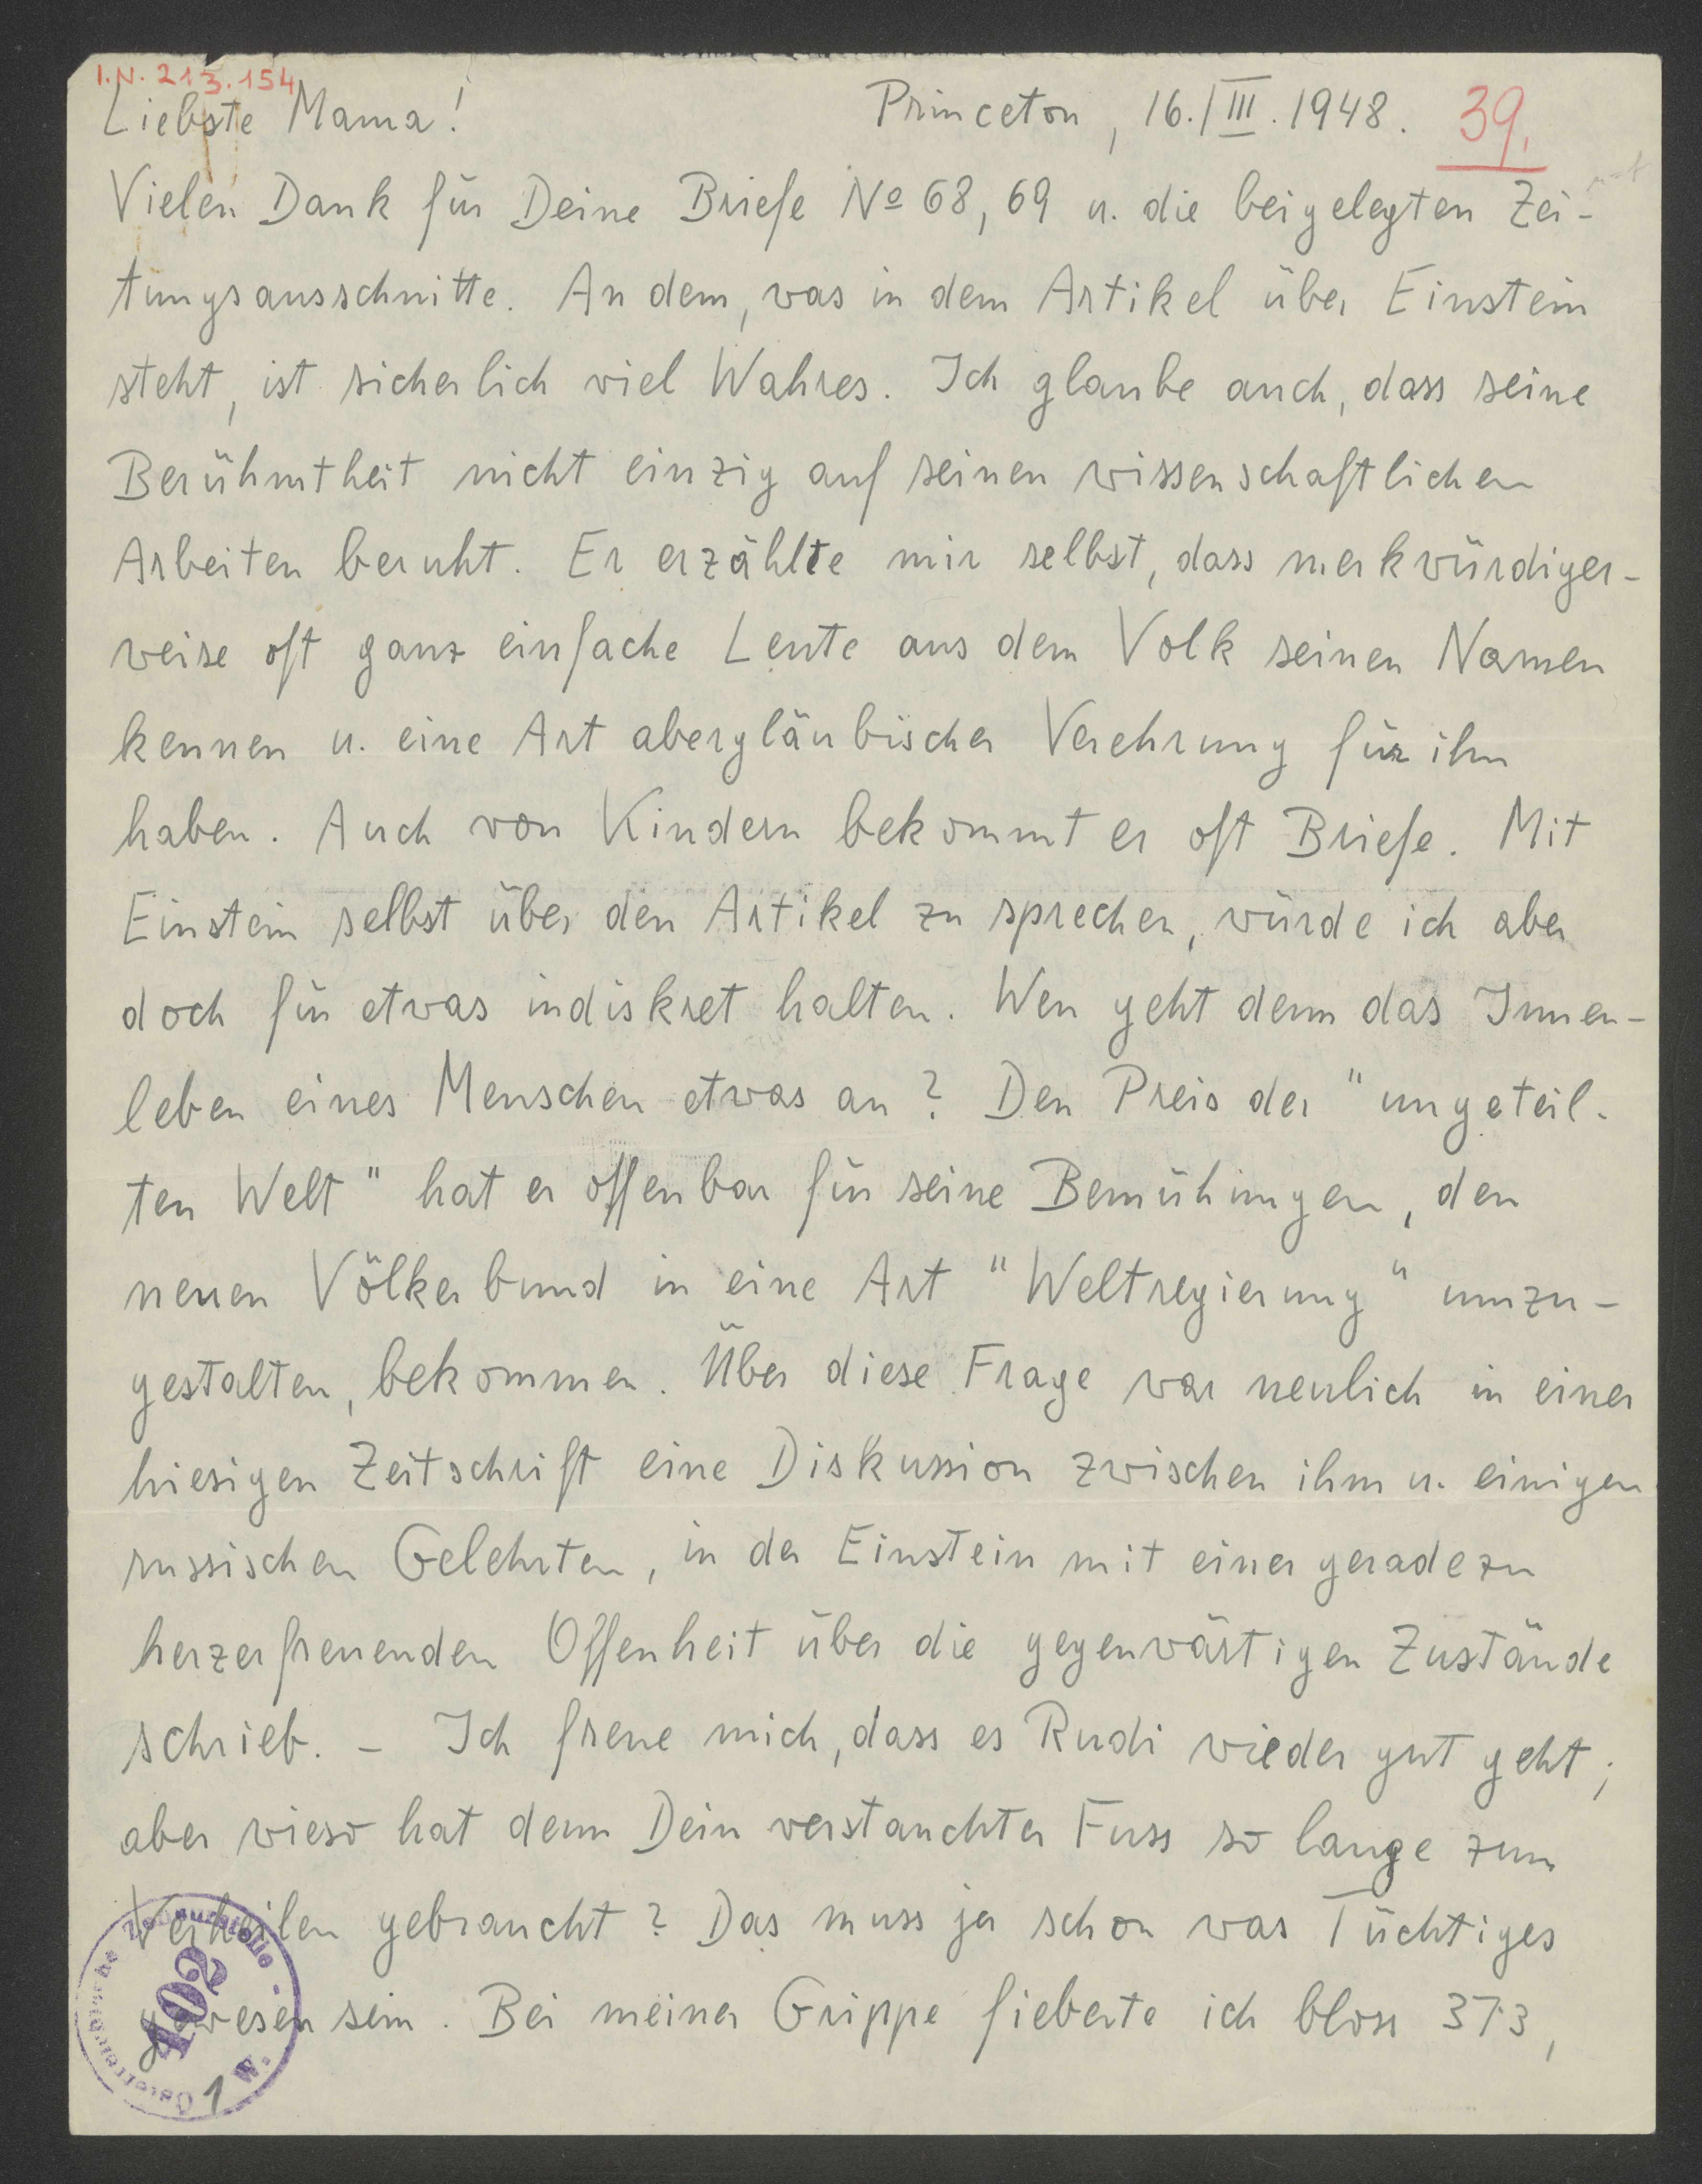 I.N. 213.154
Liebste Mama! Princeton, 16./III.1948. 39.
Vielen Dank für Deine Briefe Nº 68, 69 u. die beigelegten Zei-
tungsausschnitte. An dem, was in dem Artikel über Einstein
steht, ist sicherlich viel Wahres. Ich glaube auch, dass seine
Berühmtheit nicht einzig auf seinen wissenschaftlichen
Arbeiten beruht. Er erzählte mir selbst, dass merkwürdiger-
weise oft ganz einfache Leute aus dem Volk seinen Namen
kennen u. eine Art abergläubischer Verehrung für ihn
haben. Auch von Kindern bekommt er oft Briefe. Mit
Einstein selbst über den Artikel zu sprechen, würde ich aber
doch für etwas indiskret halten. Wen geht denn das Innen-
leben eines Menschen etwas an? Den Preis der "ungeteil-
ten Welt" hat er offenbar für seine Bemühungen, den
neuen Völkerbund in eine Art "Weltregierung" umzu-
gestalten, bekommen. Über diese Frage war neulich in einer
hiesigen Zeitschrift eine Diskussion zwischen ihm u. einigen
russischen Gelehrten, in der Einstein mit einer geradezu
herzerfreuenden Offenheit über die gegenwärtigen Zustände
schrieb. – Ich freue mich, dass es Rudi wieder gut geht;
aber wieso hat denn Dein verstauchter Fuss so lange zum
Verheilen gebraucht? Das muss ja schon was Tüchtiges
gewesen sein. Bei meiner Grippe fieberte ich bloss 37·3,
Österreichische Zensurstelle · W.
402
1